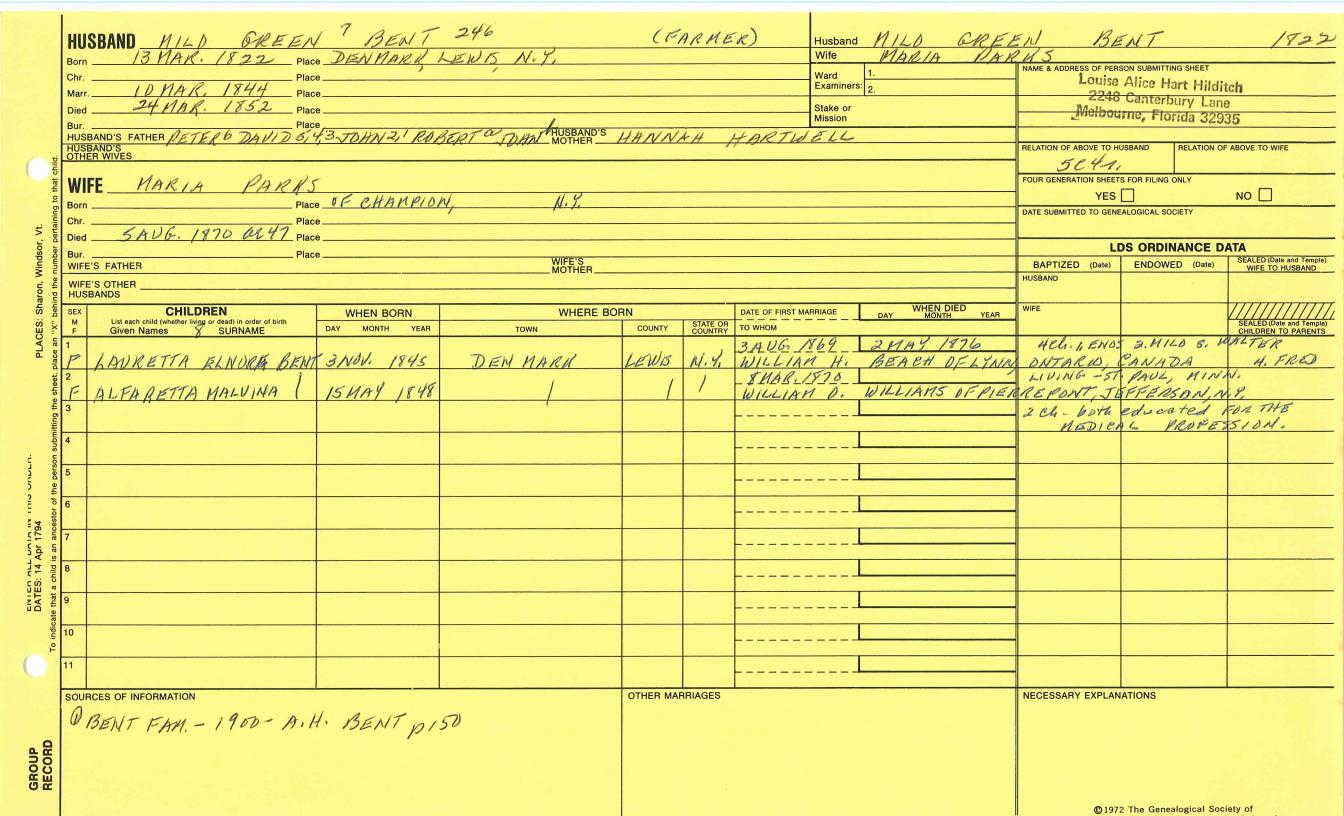 HUSBAND MILO GREEN 7 BENT 246 (FARMER)
Born 13 MAR. 1822 Place DENMARK, LEWIS, N.Y.
Chr. Place
Marr. 10 MAR. 1844 Place
Died 24 MAR. 1852 Place
Bur. Place
HUSBAND'S FATHER PETER6 DAVID 5,4,3 JOHN2, ROBERT JOHN HUSBAND'S MOTHER HANNAH HARTWELL
HUSBAND'S OTHER WIVES
Husband MILO GREEN BENT 1822
Wife MARIA PARKS
Ward Examiners: 1.
2.
Stake or Mission
NAME & ADDRESS OF PERSON SUBMITTING SHEET
Louise Alice Hart Hilditch
2248 Canterbury Lane
Melbourne, Florida 32935
RELATION OF ABOVE TO HUSBAND RELATION OF ABOVE TO WIFE
5C4r.
FOUR GENERATION SHEETS FOR FILING ONLY
YES NO
DATE SUBMITTED TO GENEALOGICAL SOCIETY
WIFE MARIA PARKS
Born Place OF CHAMPION, N.Y.
Chr. Place
Died 5 AUG. 1870 OR 47 Place
Bur. Place
WIFE'S FATHER WIFE'S MOTHER
WIFE'S OTHER HUSBANDS
LDS ORDINANCE DATA
BAPTIZED (Date) ENDOWED (Date) SEALED (Date and Temple) WIFE TO HUSBAND
HUSBAND
WIFE
SEALED (Date and Temple) CHILDREN TO PARENTS
SEX M F
CHILDREN
List each child (whether living or dead) in order of birth
Given Names 8 SURNAME
WHEN BORN
DAY MONTH YEAR
WHERE BORN
TOWN COUNTY STATE OR COUNTRY
DATE OF FIRST MARRIAGE
TO WHOM
WHEN DIED
DAY MONTH YEAR
1 3 AUG 1869 2 MAY 1876 4ch. 1, ENOS 2. MILO 3. WALTER
F LAURETTA ELNORA BENT 3 NOV. 1845 DENMARK LEWIS N.Y. WILLIAM H. BEACH OF LYNN, ONTARIO, CANADA 4. FRED
2 8 MAR. 1870 LIVING - ST. PAUL, MINN.
F ALFARETTA MALVINA 15 MAY 1848 WILLIAM D. WILLIAMS OF PIERREPONT, JEFFERSON, N.Y.
3 2 ch - both educated FOR THE
MEDICAL PROFESSION.
4
5
6
7
8
9
10
11
SOURCES OF INFORMATION
① BENT FAM. - 1900 - A.H. BENT p150
OTHER MARRIAGES
NECESSARY EXPLANATIONS
©1972 The Genealogical Society of
PLACES: Sharon, Windsor, Vt.
ENTER ALL DATA IN THIS ORDER:
DATES: 14 Apr 1794
To indicate that a child is an ancestor of the person submitting the sheet, place an "X" behind the number pertaining to that child.
GROUP RECORD